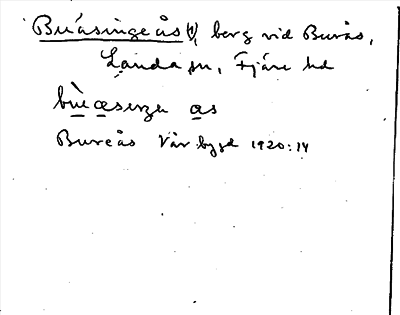 Buråsingeås (!), berg vid Burås,
Landa sn, Fjäre hd
Bureås Vår bygd 1920:14